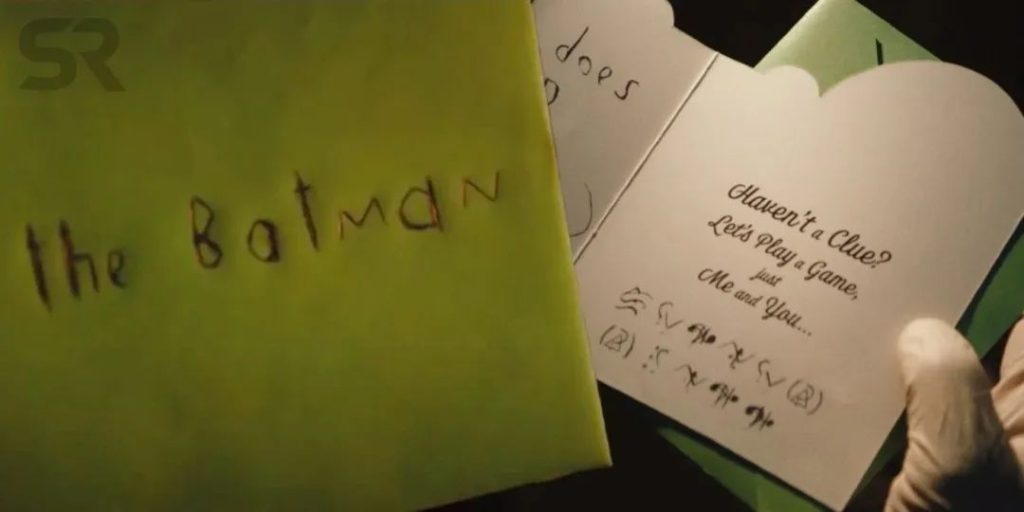 SR
the Batman
does
Haven't a Clue?
Let's Play a Game,
just
Me and You...